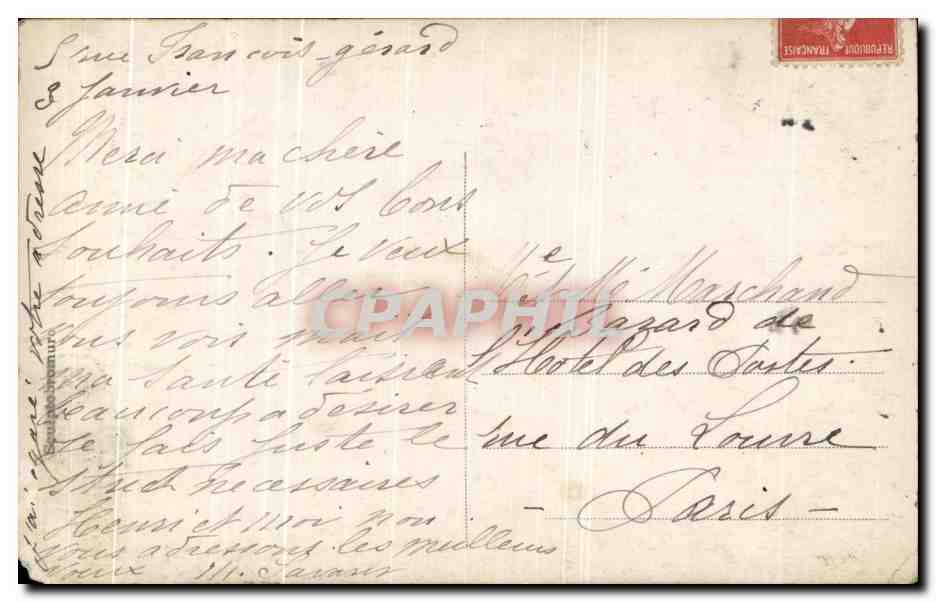 5 rue François-gérard
3 Janvier
Merci ma chère
amie de vos bons
souhaits. Je veux
toujours aller
vous voir mais
ma santé laissant
beaucoup a desirer
je fais juste le
strict necessaires
Henri et moi nou
vous adressons les meilleurs
voeux M.
j'ai égaré votre adresse
Marchand
Bazard de
l'Hotel des Postes.
rue du Louvre
- Paris -
REPUBLIQUE FRANÇAISE
CPAPHIL